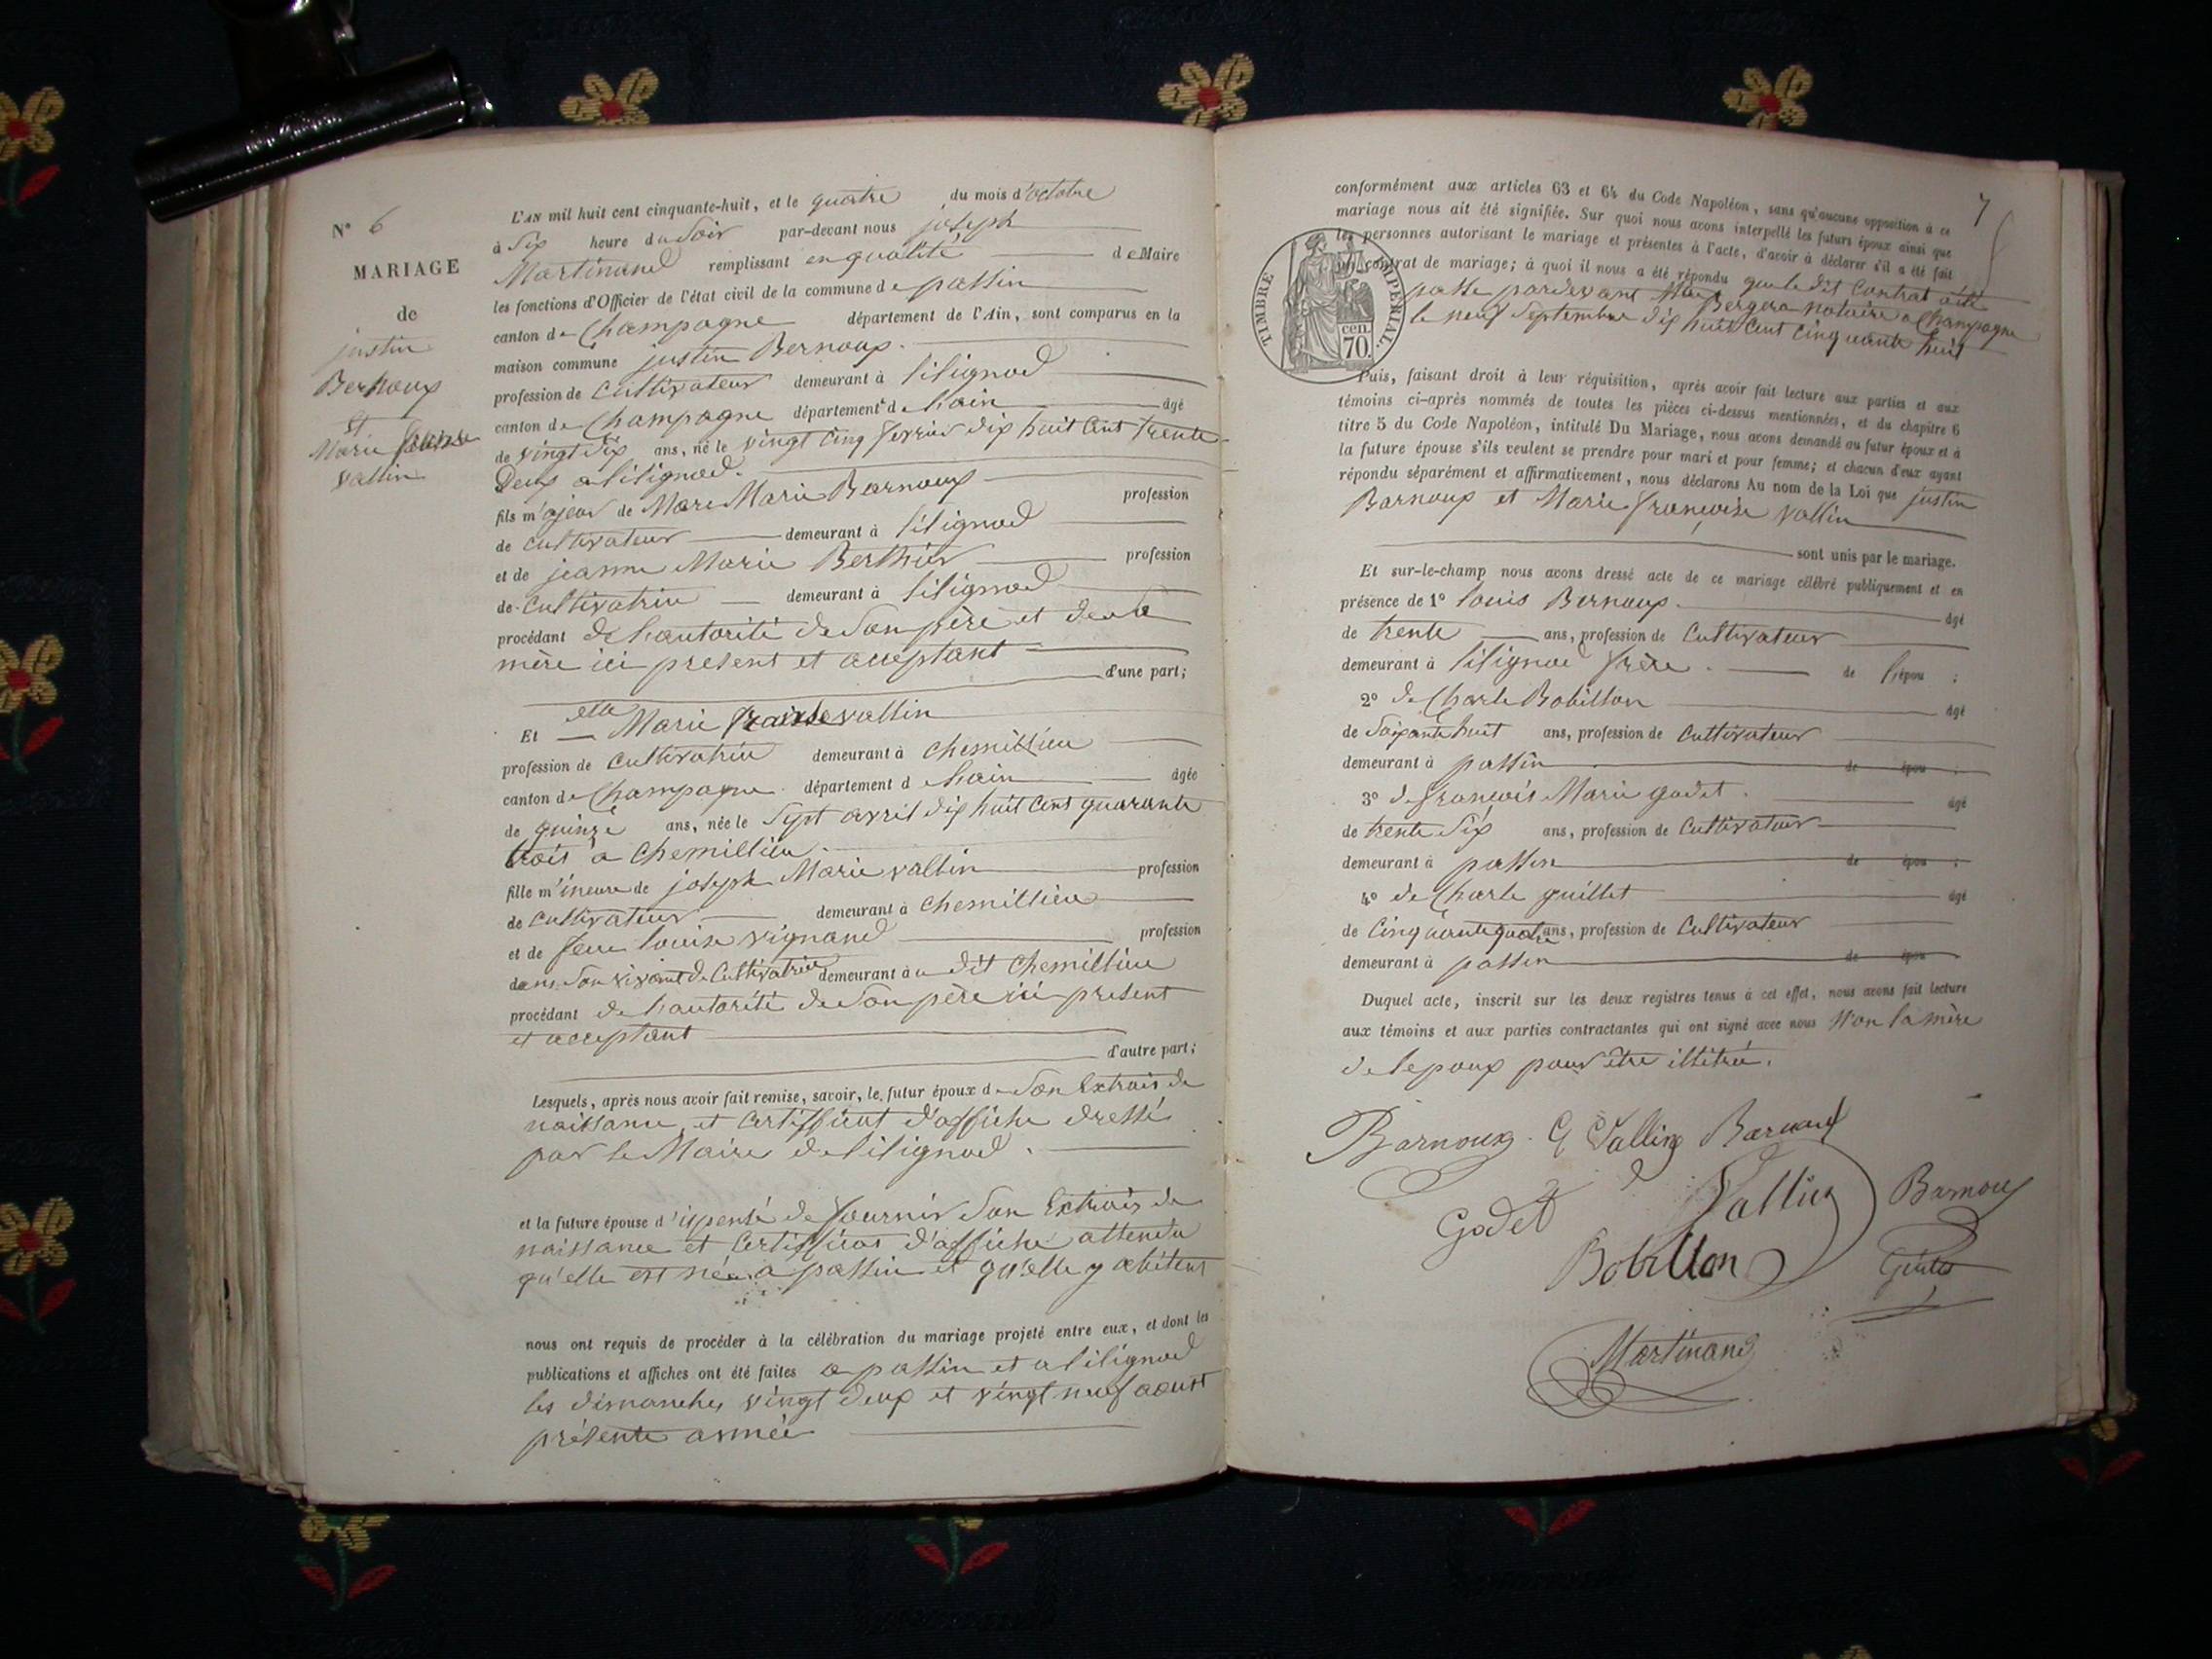 N° 6
MARIAGE
de
justin
Bernoux
et
Marie
Vallin
L'AN mil huit cent cinquante-huit, et le quatre du mois d'octobre
à Six heure du Soir par-devant nous joseph
Martinand remplissant en qualité de Maire
les fonctions d'Officier de l'état civil de la commune de passin
canton de Champagne département de l'Ain, sont comparus en la
maison commune justin Bernoux
profession de Cultivateur demeurant à lilignod
canton de Champagne département de lain âgé
de vingt Six ans, né le vingt Cinq fevrier dix huit Cent trente
Deux a lilignod.
fils m'ajeur de Marc Marie Barnoux profession
de cultivateur demeurant à lilignod
et de jeanne Marie Berthier profession
de Cultivatrice demeurant à lilignod
procédant de lautorité de Son père et de sa
mère ici present et acceptant
d'une part;
Et Marie vallin
profession de Cultivatrice demeurant à chemillieu
canton de Champagne département de lain âgée
de quinze ans, née le Sept avril dix huit Cent quarante
trois a chemillieu
fille m'ineure de joseph Marie vallin profession
de Cultivateur demeurant à chemillieu
et de feue louise vignand profession
dans Son vivant de Cultivatrice demeurant à u dit chemillieu
procédant de lautorité de Son père ici present
et acceptant
d'autre part;
Lesquels, après nous avoir fait remise, savoir, le futur époux de Son Extrais de
naissance et Certifficat d'affiche dressé
par le Maire de lilignod.
et la future épouse d'ispensé de fournir Son Extrais de
naissance et Certifficat d'affiche attendu
qu'elle est née a passin et qu'elle y abitent
nous ont requis de procéder à la célébration du mariage projeté entre eux, et dont les
publications et affiches ont été faites a passin et a lilignod
les dimanches vingt deux et vingt neuf aoust
présente année
7
conformément aux articles 63 et 64 du Code Napoléon, sans qu'aucune opposition à ce
mariage nous ait été signifiée. Sur quoi nous avons interpellé les futurs époux ainsi que
les personnes autorisant le mariage et présentes à l'acte, d'avoir à déclarer s'il a été fait
un contrat de mariage; à quoi il nous a été répondu que le dit Contrat a été
passe pardevant Bergera notaire a Champagne
le neuf Septembre dix huit Cent Cinquante huit
TIMBRE IMPERIAL.
cen.
70.
Puis, faisant droit à leur réquisition, après avoir fait lecture aux parties et aux
témoins ci-après nommés de toutes les pièces ci-dessus mentionnées, et du chapitre 6
titre 5 du Code Napoléon, intitulé Du Mariage, nous avons demandé au futur époux et à
la future épouse s'ils veulent se prendre pour mari et pour femme; et chacun d'eux ayant
répondu séparément et affirmativement, nous déclarons Au nom de la Loi que justin
Barnoux et Marie françoise vallin
sont unis par le mariage.
Et sur-le-champ nous avons dressé acte de ce mariage célébré publiquement et en
présence de 1° louis Bernoux âgé
de trente ans, profession de Cultivateur
demeurant à lilignod frère de l'épou ;
2° de Charle Bobillon âgé
de Soixante huit ans, profession de Cultivateur
demeurant à passin de épou ;
3° de françois Marie godet âgé
de trente Six ans, profession de Cultivateur
demeurant à passin de épou ;
4° de Charle guillet âgé
de Cinquante quatre ans, profession de Cultivateur
demeurant à passin de épou
Duquel acte, inscrit sur les deux registres tenus à cet effet, nous avons fait lecture
aux témoins et aux parties contractantes qui ont signé avec nous Non la mère
de lepoux pour être illitrée.
Barnoux Vallin
Godet Vallin Barnoux
Bobillon
Martinand